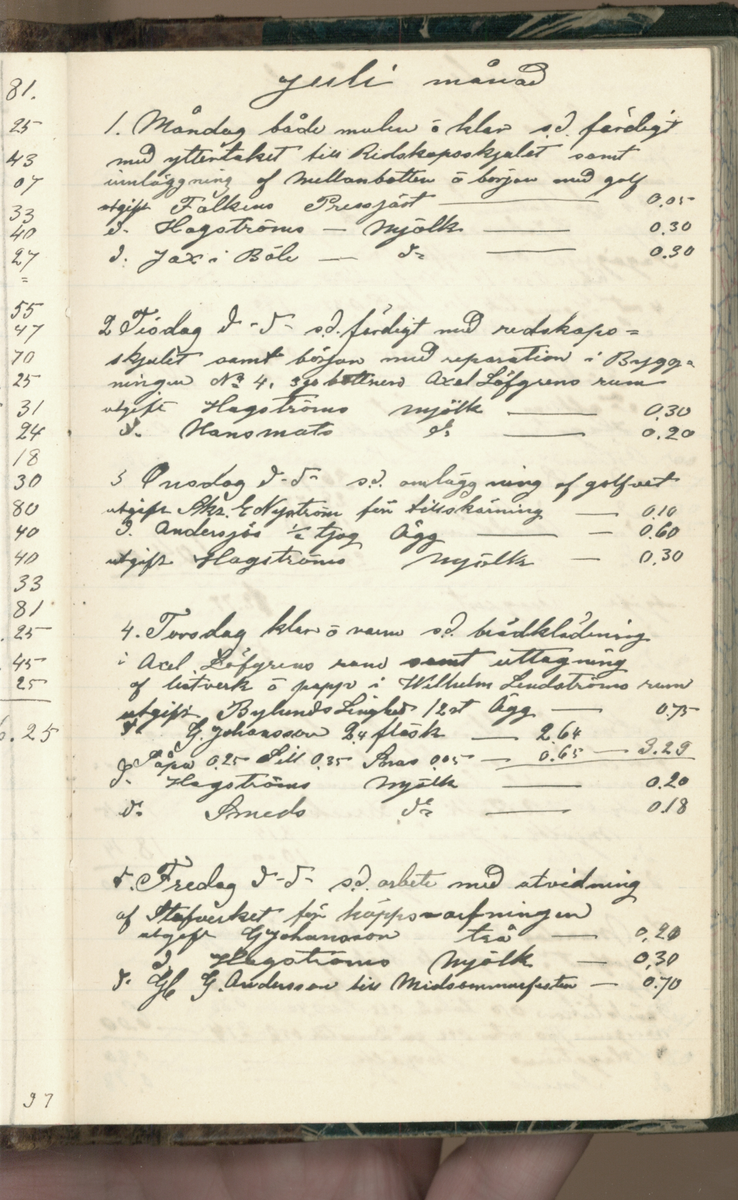 81.
25
43
07
33
40
27
=
55
47
70
25
31
24
18
30
80
40
40
33
81
.25
45
25
.25
97
Juli månad
1. Måndag både mulen o klar s.d. färdigt
med yttertaket till Redskapsskjulet samt
inläggning af Mellanbotten o början med golf
utgift Falkens Pressjäst — 0.05
d. Hagströms — Mjölk — 0.30
d. Jax i Böle — d= 0.30
2 Tisdag d-d- s.d. färdigt med redskaps=
skjulet samt början med reparation i Bygg=
ningen No 4. Axel Löfgrens rum
utgift Hagströms mjölk — 0.30
d. Hansmats d: — 0.20
3 Onsdag d-d- s.d. omläggning af golfvet
utgift Skr. E Nyström för tillskärning — 0.10
d. Andersjös ½ tjog Ägg — 0.60
utgift Hagströms Mjölk — 0.30
4. Torsdag klar o varm s.d. brädklädning
i Axel Löfgrens rum samt uttagning
af listverk o papp i Wilhelm Lindströms rum
utgift Bylunds 12 st Ägg — 0.75
d G. Johansson 2,4 fläsk — 2.64
d Såpa 0.25 Sill 0.35 0.05 — 0.65 — 3.29
d. Hagströms Mjölk — 0.20
d: Smeds d: — 0.18
5. Fredag d-d- s.d. arbete med utvidning
af Stafverket för
utgift G Johansson — 0.20
d Hagströms Mjölk — 0.30
d. G. Andersson till Midsommarfesten — 0.70